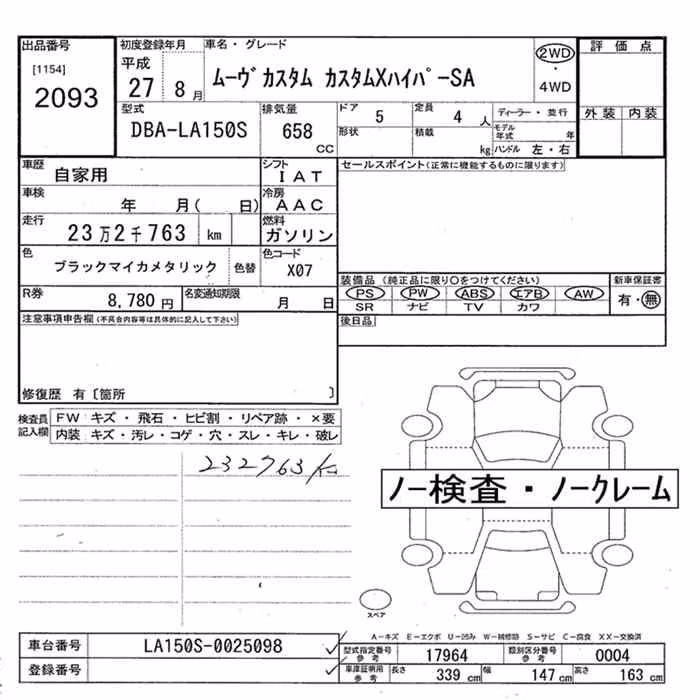 出品番号
[1154]
2093
初度登録年月
平成
27 8 月
車名・グレード
ムーヴカスタム カスタムXハイパーSA
2WD
・
4WD
評価点
外装 内装
型式
DBA-LA150S
排気量
658
CC
ドア 5
定員 4 人
形状
積載 kg
ディーラー・並行
モデル年式 年
ハンドル 左・右
車歴
自家用
シフト
IAT
セールスポイント(正常に機能するものに限ります)
車検
年 月( 日)
冷房
AAC
走行
23万2千763 km
燃料
ガソリン
色
ブラックマイカメタリック
色替
色コード
X07
R券
8,780円
名変通知期限
月 日
装備品(純正品に限り○をつけてください)
PS PW ABS エアB AW
SR ナビ TV カワ
新車保証書
有・無
後日品
注意事項申告欄(不具合内容等は具体的に記入して下さい)
修復歴 有〔箇所 〕
検査員記入欄
FW キズ・飛石・ヒビ割・リペア跡・×要
内装 キズ・汚レ・コゲ・穴・スレ・キレ・破レ
232763km
ノー検査・ノークレーム
スペア
A-キズ E-エクボ U-凹み W-補修跡 S-サビ C-腐食 XX-交換済
車台番号
LA150S-0025098
登録番号
型式指定番号参考
17964
類別区分番号参考
0004
車庫証明用参考
長さ 339 cm
幅 147 cm
高さ 163 cm